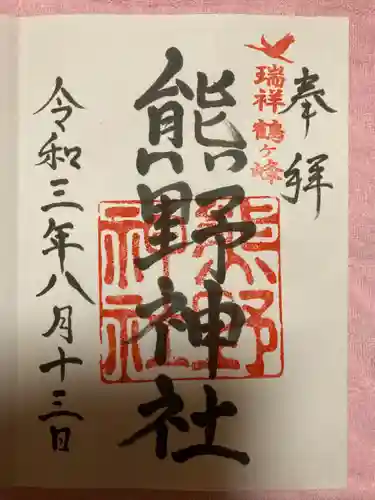 奉拝
瑞祥 鶴ヶ峰
熊野神社
熊野
神社
令和三年八月十三日